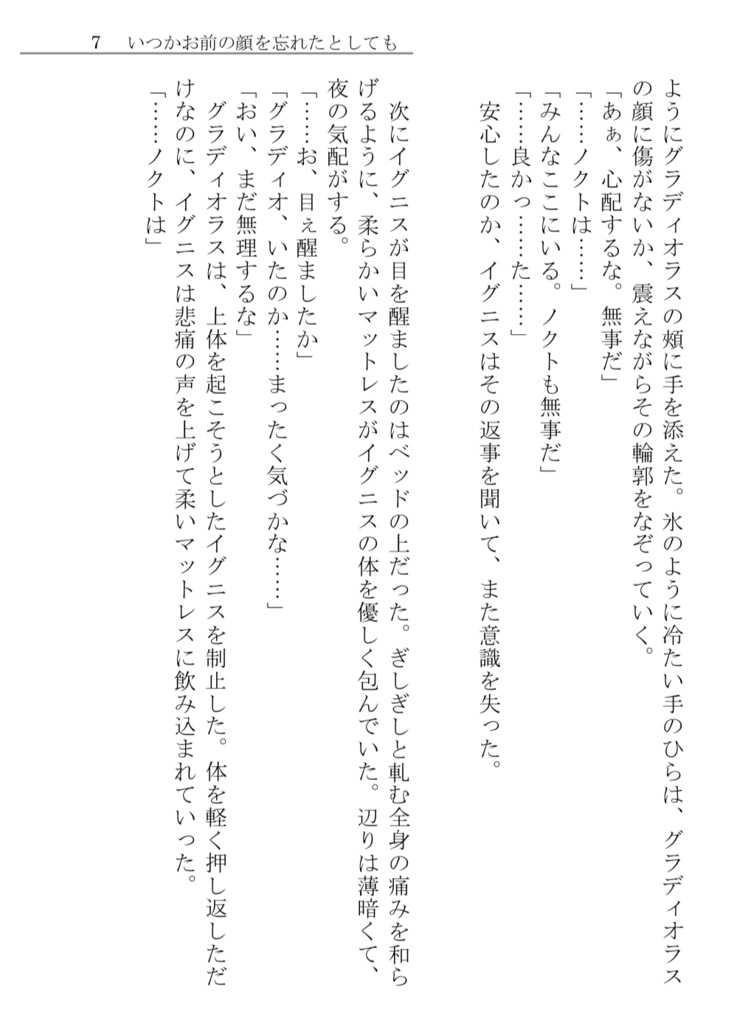 7 いつかお前の顔を忘れたとしても
ようにグラディオラスの頰に手を添えた。氷のように冷たい手のひらは、グラディオラス
の顔に傷がないか、震えながらその輪郭をなぞっていく。
「あぁ、心配するな。無事だ」
「……ノクトは……」
「みんなここにいる。ノクトも無事だ」
「……良かっ……た……」
安心したのか、イグニスはその返事を聞いて、また意識を失った。
次にイグニスが目を醒ましたのはベッドの上だった。ぎしぎしと軋む全身の痛みを和ら
げるように、柔らかいマットレスがイグニスの体を優しく包んでいた。辺りは薄暗くて、
夜の気配がする。
「……お、目ぇ醒ましたか」
「グラディオ、いたのか……まったく気づかな……」
「おい、まだ無理するな」
グラディオラスは、上体を起こそうとしたイグニスを制止した。体を軽く押し返しただ
けなのに、イグニスは悲痛の声を上げて柔いマットレスに飲み込まれていった。
「……ノクトは」